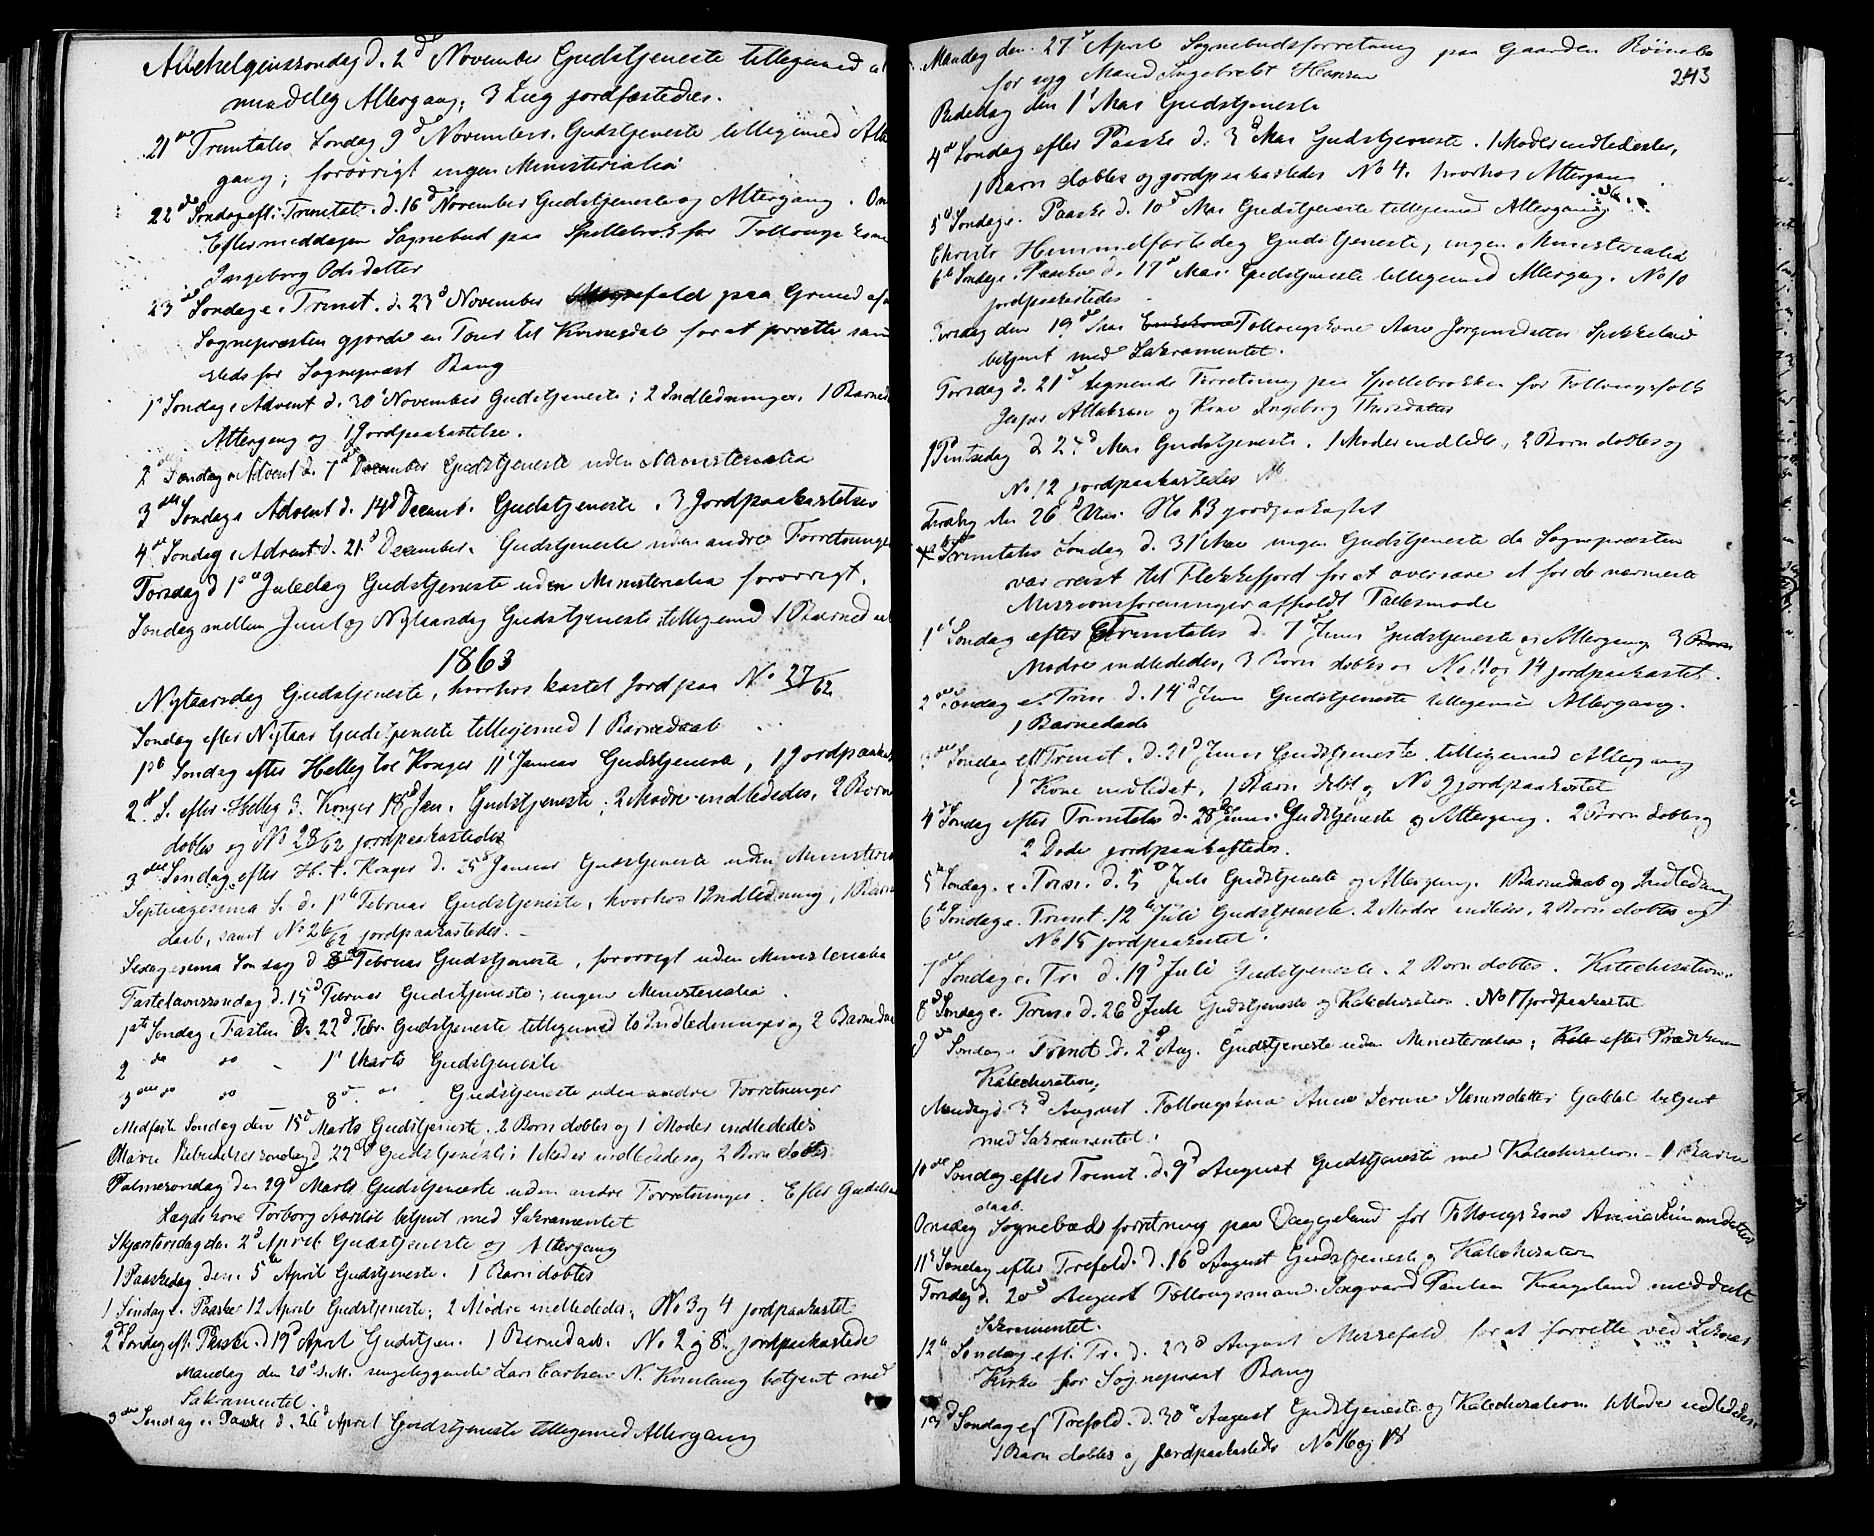 Allehelgenssøndag d. 2d November Gudstjeneste tilligemed
mindelig Altergang; 3 Liig jordfæstedes.
21de Trinitatis Søndag 9d November. Gudstjeneste tilligemed Alter
gang; forøvrigt ingen Ministerialia
22de Søndag eft. Trinitat. d. 16d November Gudstjeneste og Altergang. Om
Eftermiddagen Sognebud paa Spellebrok for Føllougs Kone
Ingeborg Odsdatter
23de Søndag e. Trinit. d. 23d November Messefald paa Grund af at
Sognepræsten gjorde en Tour til Kvinesdal for at forrette sam
steds for Sognepræst Bang
1s Søndag i Advent d. 30t November Gudstjeneste; 2 Indledninger, 1 Barned
Altergang og 1 Jordpaakastelse.
2den Søndag i Advent d. 7de December Gudstjeneste uden Ministerialia
3die Søndag i Advent d. 14d Decemb. Gudstjeneste. 3 Jordpaakastelser
4de Søndag i Advent d. 21d December. Gudstjeneste uden andre Forretninger
Torsdag d 1ste Juledag Gudstjeneste uden Ministerialia forøvrigt.
Søndag mellem Juul og Nytaarsdag Gudstjeneste tilligemed 1 Barned
1863
Nytaarsdag Gudstjeneste, hvorhos kastet Jord paa No 27/62
Søndag efter Nytaar Gudstjeneste tilligemed 1 Barnedaab
1ste Søndag efter Hellig tre Konger 11t Januar Gudstjeneste, 1 Jordpaakast
2d S. efter Hellig 3 Konger 18d Jan. Gudstjeneste; 2 Mødre indlededes, 2 Børn
døbtes og No 28/62 jordpaakastedes
3die Søndag efter H. t. Konger d. 25d Januar Gudstjeneste uden Ministeri
Septuagesima S. d. 1ste Februar Gudstjeneste, hvorhos 1 Indledning, 1 Barne
daab, samt No 26/62 jordpaakastedes.
Sexagesima Søndag d 8de Februar Gudstjeneste, forøvrigt uden Ministerialia
Fastelavnssøndag d. 15d Februar Gudstjeneste; ingen Ministerialia.
1ste Søndag i Fasten d. 22d Febr. Gudstjeneste tilligemed to Indledninger og 2 Barneda
2 do do - 1t Marts Gudstjeneste
3die do do 8d. do. Gudstjeneste uden andre Forretninger
Midfaste Søndag den 15d Marts Gudstjeneste. 2 Børn døbtes og 1 Moder indlededes
Mariæ Bebudelsessøndag d. 22d Gudstjeneste; 1 Moder indlededes og 2 Børn døbtes
Palmesøndag den 29d Marts Gudstjeneste uden andre Forretninger. Efter Gudstj
Lægdskone Torborg betjent med Sakramentet
Skjærtorsdag den 2d April Gudstjeneste og Altergang
1 Paaskedag den 5te April Gudstjeneste. 1 Barn døbtes
1 Søndag e. Paaske 12 April Gudstjeneste; 2 Mødre indlededes; No 3 og 4 jordpaakastet
2d Søndag eft. Paaske d. 19d April Gudstjen. 1 Barnedaab. No 2 og 8. jordpaakastede
Mandag den 20d s.M. sengeliggende Lars Carlsen N. Kvinlaug betjent med
Sakramentet.
3die Søndag e. Paaske d. 26d April Gudstjeneste tilligemed Altergang
Mandag den 27d April Sognebudsforretning paa Gaarden
243
for syg Mand Ingebrekt Hansen
Bededag den 1t Mai Gudstjeneste
4de Søndag efter Paaske d. 3d Mai Gudstjeneste. 1 Moder indlededes,
1 Barn døbtes og jordpaakastedes No 4. hvorhos Altergang
5d Søndag e. Paaske d. 10d Mai Gudstjeneste tilligemed Altergang
Christi Himmelfartsdag Gudstjeneste, ingen Ministerialia
6te Søndag e. Paaske d. 17d Mai. Gudstjeneste tilligemed Altergang. No 10
jordpaakastedes.
Tirsdag den 19d Mai Føllougskone Aase Jørgensdatter Spikkeland
betjent med Sakramentet.
Torsdag d. 21d lignende Forretning paa Spellebrokken for Føllougsfolk
Jesper Atlaksen og Kone Ingeborg Thorsdatter
1ste Pintsedag d 24d Mai Gudstjeneste. 1 Moder indledt, 2 Børn døbtes og
No 12 jordpaakastedes
Tirsdag den 26d Mai. No 23 jordpaakastet
Trinitatis Søndag d. 31t Mai ingen Gudstjeneste da Sognepræsten
var reist til Flekkefjord for at overvære et for de nærmeste
Missionsforeninger afholdt Fællesmøde
1ste Søndag efter Trinitatis d. 7d Juni Gudstjeneste og Altergang 3 Børn
Mødre indlededes, 3 Børn døbtes og No 11 og 14 jordpaakastet.
2den Søndag e. Trin. d. 14d Juni Gudstjeneste tilligemed Altergang.
1 Barnedaab
3die Søndag e. Trinit. d. 21d Juni Gudstjeneste tilligemed Altergang
1 Kone indledet, 1 Barn døbt og No 9 jordpaakastet
4d Søndag efter Trinitatis d. 28de Juni. Gudstjeneste og Altergang. 2 Børn døbtes og
2 Døde jordpaakastedes.
5te Søndag. e. Trin. d. 5d Juli Gudstjeneste og Altergang. 1 Barnedaab og Indledning
6te Søndag e. Trinit. 12te Juli Gudstjeneste. 2 Mødre indledes, 2 Børn døbtes og
No 15 jordpaakastet.
7de Søndag e. Tr. d. 19d Juli Gudstjeneste. 2 Børn døbtes. Katechisation.
8d Søndag e. Trin. d. 26d Juli Gudstjeneste og Katechisation. No 17 jordpaakastet
9de Søndag e. Trinit. d. 2d Aug. Gudstjeneste uden Ministerialia; Kate efter Prædiken
Katechisation.
Mandag d. 3d August. Føllougskone Anne Serine betjent
med Sakramentet.
10de Søndag efter Trinit. d. 9d August Gudstjeneste med Katechisation - 1 Barne
daab.
Onsdag Sognebudsforretning paa Væggeland for Føllougskone Anna Simonsdatter
11te Søndag efter Trefold. d. 16d August Gudstjeneste og Katechisation
Torsdag d. 20d August Føllougsmand Sagvard Paulsen Knageland meddelt
Sakramentet.
12te Søndag eft. Tr. d. 23d August Messefald for at forrette ved Liknes
Kirke for Sognepræst Bang
13d Søndag ef Trefold. d. 30d August Gudstjeneste og Katechisation 1 Moder indlededes,
1 Barn døbtes og jordpaakastedes No 16 og 18